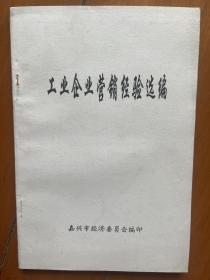 工业企业营销经验选编
嘉兴市经济委员会编印